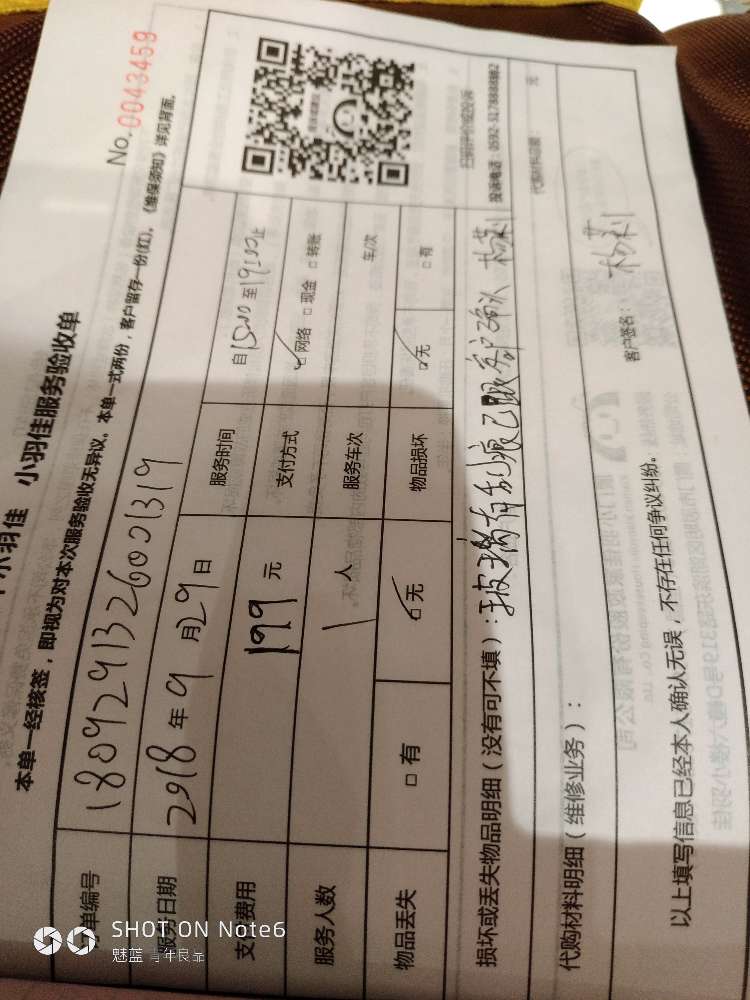 小羽佳 小羽佳服务验收单
No. 0043459
本单一经核签，即视为对本次服务验收无异议。本单一式两份，客户留存一份(红)。《维保须知》详见背面。
单编号 1809291326001319
服务日期 2018年9月29日 服务时间 自15:00至19:00止
支付费用 199元 支付方式 网络 现金 转账
服务人数 1人 服务车次 车/次
物品丢失 有 无 物品损坏 无 有
扫码评价或投诉
投诉电话：0592-3178888转2
损坏或丢失物品明细（没有可不填）：墙有刮痕已跟客户确认
代购材料明细（维修业务）：
代购材料总额： 元
以上填写信息已经本人确认无误，不存在任何争议纠纷。
客户签名：
SHOT ON Note6
魅蓝 青年良品